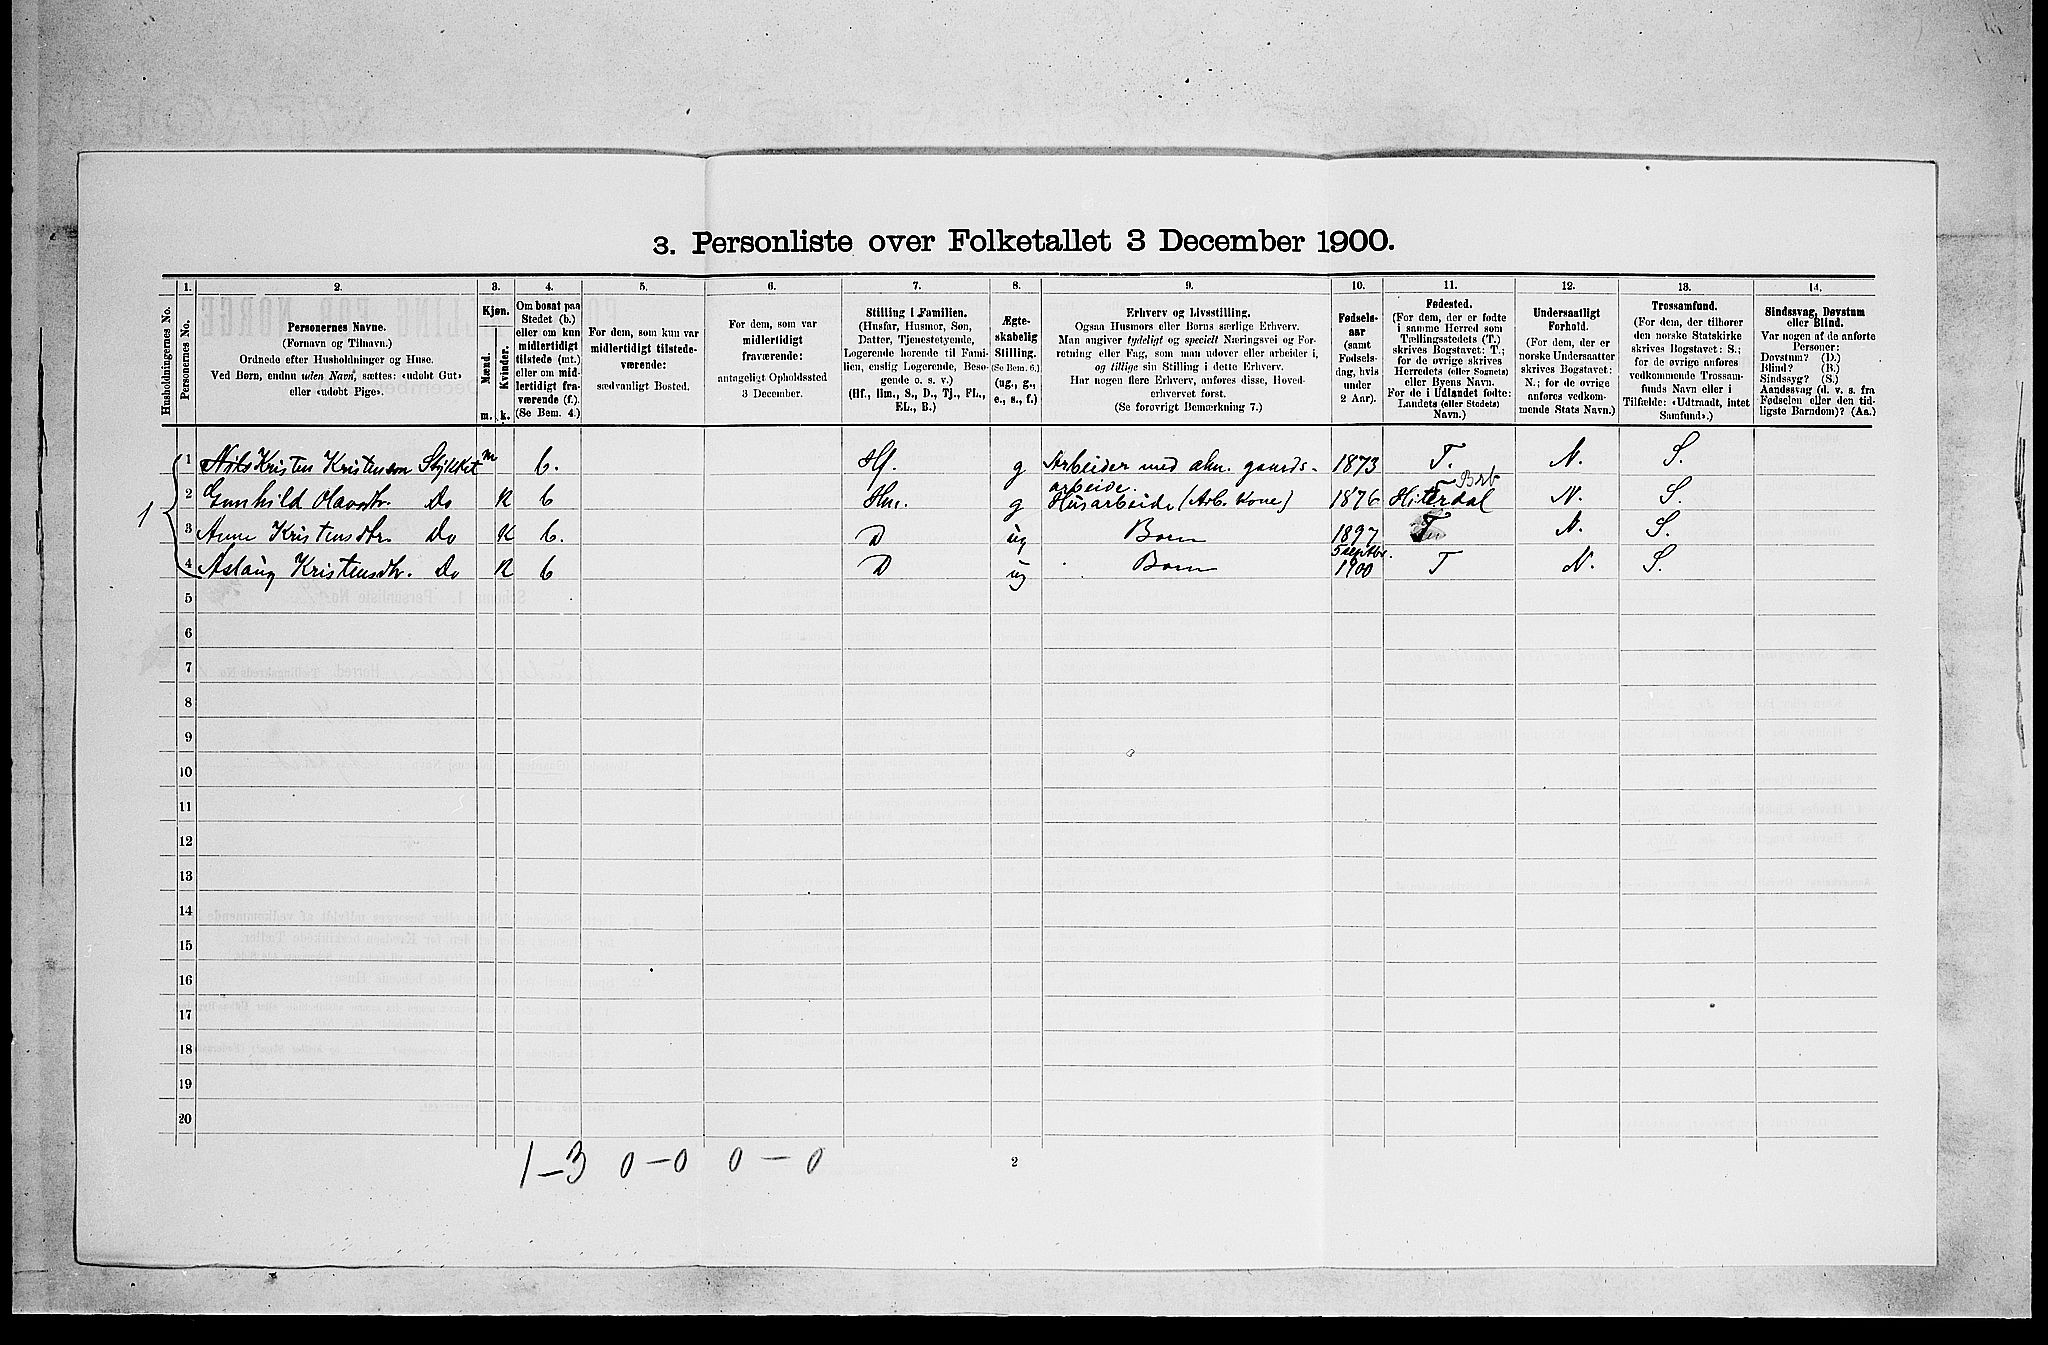 3. Personliste over Folketallet 3 December 1900.
Husholdningernes No.
1.
Personernes No.
2.
Personernes Navne.
(Fornavn og Tilnavn.)
Ordnede efter Husholdninger og Huse.
Ved Børn, endnu uden Navn, sættes: «udøbt Gut»
eller «udøbt Pige».
3.
Kjøn.
Mænd.
Kvinder.
m.
k.
4.
Om bosat paa
Stedet (b.)
eller om kun
midlertidigt
tilstede (mt.)
eller om mid-
lertidigt fra-
værende (f.).
(Se Bem. 4.)
5.
For dem, som kun var
midlertidigt tilstede-
værende:
sædvanligt Bosted.
6.
For dem, som var
midlertidigt
fraværende:
antageligt Opholdssted
3 December.
7.
Stilling i Familien.
(Husfar, Husmor, Søn,
Datter, Tjenestetyende,
Logerende hørende til Fami-
lien, enslig Logerende, Besø-
gende o. s. v.)
(Hf., Hm., S., D., Tj., FL.,
EL., B.)
8.
Ægte-
skabelig
Stilling.
(Se Bem. 6.)
(ug., g.,
e., s., f.)
9.
Erhverv og Livsstilling.
Ogsaa Husmors eller Børns særlige Erhverv.
Man angiver tydeligt og specielt Næringsvei og For-
retning eller Fag, som man udøver eller arbeider i,
og tillige sin Stilling i dette Erhverv.
Har nogen flere Erhverv, anføres disse, Hoved-
erhvervet først.
(Se forøvrigt Bemærkning 7.)
10.
Fødsels-
aar
(samt
Fødsels-
dag, hvis
under
2 Aar).
11.
Fødested.
(For dem, der er fødte
i samme Herred som
Tællingsstedets (T.)
skrives Bogstavet: T.;
for de øvrige skrives
Herredets (eller Sognets)
eller Byens Navn.
For de i Udlandet fødte:
Landets (eller Stedets)
Navn.)
12.
Undersaatligt
Forhold.
(For dem, der er
norske Undersaatter
skrives Bogstavet:
N.; for de øvrige
anføres vedkom-
mende Stats Navn.)
13.
Trossamfund.
(For dem, der tilhører
den norske Statskirke
skrives Bogstavet: S.;
for de øvrige anføres
vedkommende Trossam-
funds Navn eller i
Tilfælde: «Udtraadt, intet
Samfund».)
14.
Sindssvag, Døvstum
eller Blind.
Var nogen af de anførte
Personer:
Døvstum? (D.)
Blind? (B.)
Sindssyg? (S.)
Aandssvag (d. v. s. fra
Fødselen eller den tid-
ligste Barndom)? (Aa.)
1
1 Nils Kristen Kristensen m b. Hf. g Arbeider med alm. gaards-
arbeide. 1873 T. N. S.
2 Gunhild Olavsdtr. Do K b Hm. g Husarbeide (Arb. Kone) 1876 Hiterdal N. S.
3 Anne Kristensdtr. Do K b. D ug Barn 1897 T N. S.
4 Aslaug Kristensdtr. Do K b D ug Barn 5 septbr. 1900 T N. S.
5
6
7
8
9
10
11
12
13
14
15
16
17
18
19
20
1-3 0-0 0-0
2